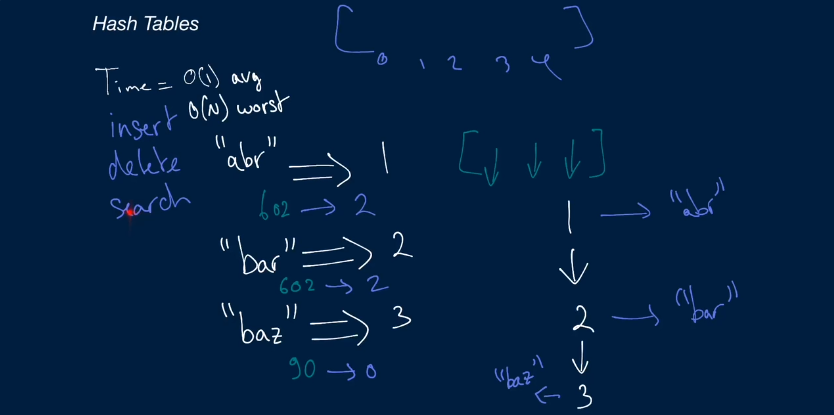 Hash Tables
[ 0 1 2 3 4 ]
Time = O(1) avg
O(N) worst
insert
delete
search
"abr" ⇒ 1
602 → 2
"bar" ⇒ 2
602 → 2
"baz" ⇒ 3
90 → 0
[ ↓ ↓ ↓ ]
1 → "abr"
↓
2 → "bar"
↓
"baz" ← 3